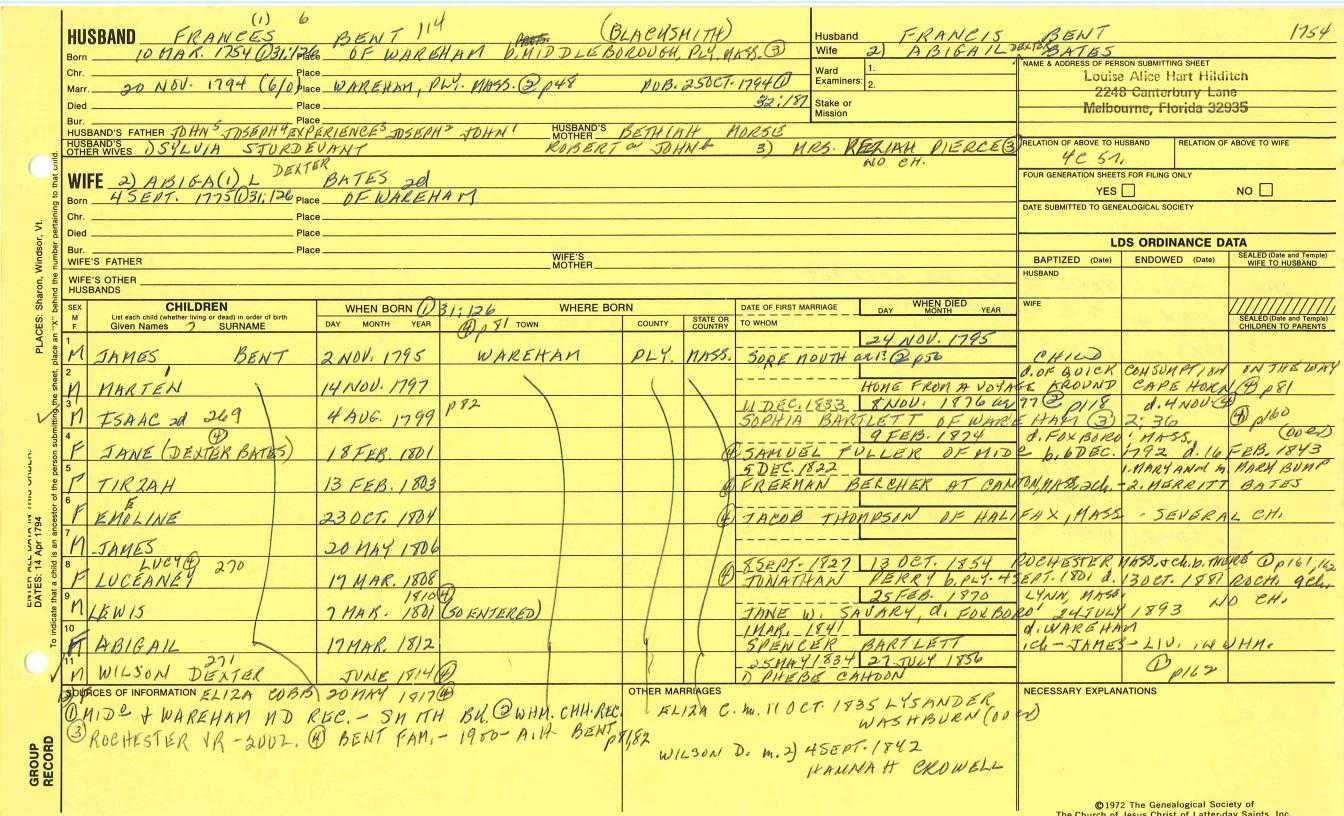 (1) 6
HUSBAND FRANCES BENT 114 (BLACKSMITH)
Born 10 MAR. 1754 ① 31:126 Place OF WAREHAM D. MIDDLEBOROUGH, PLY. MASS. ③
Chr. Place
Marr. 20 NOV. 1794 (6/0) Place WAREHAM, PLY. MASS. ② p48 PUB. 25 OCT. 1794 ①
32:187
Died Place
Bur. Place
HUSBAND'S FATHER JOHN⁵ JOSEPH⁴ EXPERIENCE³ JOSEPH² JOHN¹ HUSBAND'S MOTHER BETHIAH MORSE
HUSBAND'S OTHER WIVES SYLVIA STURDEVANT ROBERT or JOHN 3) MRS. KEZIAH PIERCE ③
NO CH.
Husband FRANCIS BENT 1754
Wife 2) ABIGAIL DEXTER BATES
Ward Examiners: 1.
2.
Stake or Mission
NAME & ADDRESS OF PERSON SUBMITTING SHEET
Louise Alice Hart Hilditch
2248 Canterbury Lane
Melbourne, Florida 32935
RELATION OF ABOVE TO HUSBAND RELATION OF ABOVE TO WIFE
4C 5r.
FOUR GENERATION SHEETS FOR FILING ONLY
YES NO
DATE SUBMITTED TO GENEALOGICAL SOCIETY
DEXTER
WIFE 2) ABIGA(1)L BATES 2d
Born 4 SEPT. 1775 ① 31:126 Place OF WAREHAM
Chr. Place
Died Place
Bur. Place
WIFE'S FATHER WIFE'S MOTHER
WIFE'S OTHER HUSBANDS
LDS ORDINANCE DATA
BAPTIZED (Date) ENDOWED (Date) SEALED (Date and Temple) WIFE TO HUSBAND
HUSBAND
WIFE
SEALED (Date and Temple) CHILDREN TO PARENTS
SEX M F CHILDREN WHEN BORN ① 31:126 WHERE BORN DATE OF FIRST MARRIAGE WHEN DIED
List each child (whether living or dead) in order of birth
Given Names 7 SURNAME DAY MONTH YEAR ④ p81 TOWN COUNTY STATE OR COUNTRY TO WHOM DAY MONTH YEAR
1 24 NOV. 1795
M JAMES BENT 2 NOV. 1795 WAREHAM PLY. MASS. SORE MOUTH ② p50 CHILD
2 d. OF QUICK CONSUMPTION ON THE WAY
M MARTEN 14 NOV. 1797 HOME FROM A VOYAGE AROUND CAPE HORN ④ p81
3 p82 11 DEC. 1833 8 NOV. 1876 97 ② p118 d. 4 NOV ③
M ISAAC 2d 269 4 AUG. 1799 SOPHIA BARTLETT OF WAREHAM ③ 2:36 ④ p160
4 ④ 9 FEB. 1874 d. FOXBORO' MASS. (over)
F JANE (DEXTER BATES) 18 FEB. 1801 ④ SAMUEL FULLER OF MIDᵒ b. 6 DEC. 1792 d. 16 FEB. 1843
5 5 DEC. 1822 1. MARY ANN m. MARK BUMP
F TIRZAH 13 FEB. 1803 ④ FREEMAN BELCHER AT CANTON, MASS. 2ch. - 2. MERRITT BATES
6 E
F EMOLINE 23 OCT. 1804 ④ JACOB THOMPSON OF HALIFAX, MASS - SEVERAL CH.
7
M JAMES 20 MAY 1806
8 LUCY ④ 270 8 SEPT. 1827 13 OCT. 1854 ROCHESTER MASS. ① p161,162
F LUCEANEY 17 MAR. 1808 ④ JONATHAN PERRY b. PLY. 4 SEPT. 1801 d. 13 OCT. 1881 ROCH. 9ch.
9 1810 ④ 25 FEB. 1870 LYNN, MASS. NO CH.
M LEWIS 7 MAR. 1801 (SO ENTERED) JANE W. SAVARY, d. FOXBORO' 24 JULY 1893
10 1 MAR. 1841 d. WAREHAM
F ABIGAIL 17 MAR. 1812 SPENCER BARTLETT 1ch - JAMES - LIV. IN WHM.
11 271 25 MAY 1834 27 JULY 1856 ① p162
M WILSON DEXTER JUNE 1814 ④ D PHEBE CAHOON
SOURCES OF INFORMATION ELIZA COBB 20 MAY 1817 ④
① MIDᵒ & WAREHAM MD REC. - SMITH BK. ② WHM. CHH. REC.
③ ROCHESTER VR - 2002. ④ BENT FAM. - 1900 - A.H. BENT p81,82
OTHER MARRIAGES
ELIZA C. m. 11 OCT. 1835 LYSANDER WASHBURN (over)
WILSON D. m. 2) 4 SEPT. 1842
HANNAH CROWELL
NECESSARY EXPLANATIONS
©1972 The Genealogical Society of
The Church of Jesus Christ of Latter-day Saints, Inc.
GROUP RECORD
ENTER ALL DATA IN THIS ORDER:
DATES: 14 Apr 1794
PLACES: Sharon, Windsor, Vt.
To indicate that a child is an ancestor of the person submitting the sheet, place an "X" behind the number pertaining to that child.